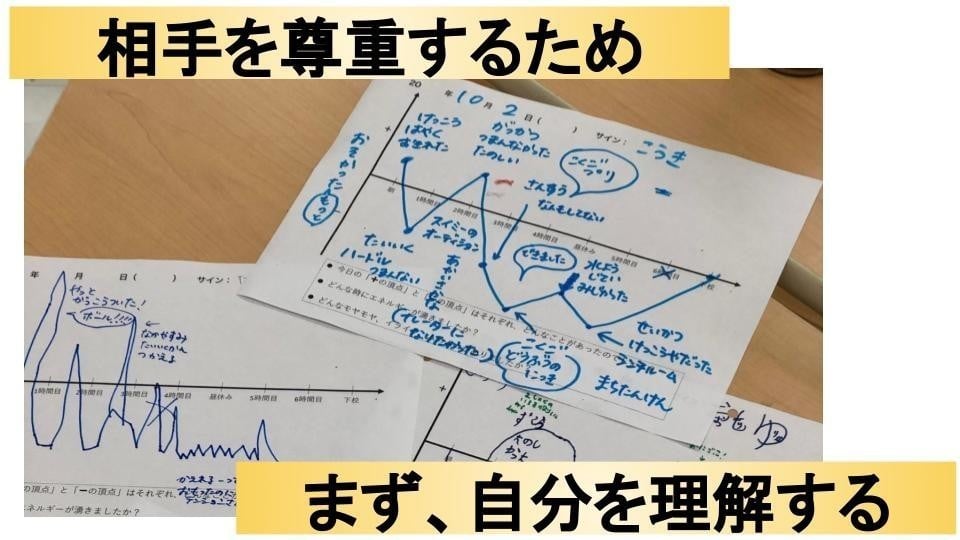 相手を尊重するため
20 年10月2日( ) サイン: こうき
けっこう
はやく
がっかつ
つまんなかった
たのしい
こくご
プリ
さんすう
なんもしてない
おそかった
もっと
朝
1時間目
2時間目
3時間目
4時間目
昼休み
5時間目
6時間目
下校
スイミーの
オーディション
たいいく
ハードル
つまんない
あかいさかな
できました
みんなやった
せいかつ
けっこうやだった
ランチルーム
まちたんけん
こくご
どうぶつの
● 今日の「+の頂点」と「ーの頂点」はそれぞれ、どんなことがあったので
● どんな時にエネルギーが湧きましたか?
● どんなモヤモヤ、イライ
年 月 日( ) サイン:
やっと
がっこうついた!
ボール!!!!
←
なかやすみ
たいいくかん
つかえよ
1時間目
2時間目
3時間目
昼休み
5時間目
6時間目
下校
かえれるーって
おもったのに
の頂点」と「ーの頂点」はそれぞれ、
エネルギーが湧きましたか?
ずこう
たのし
まず、自分を理解する